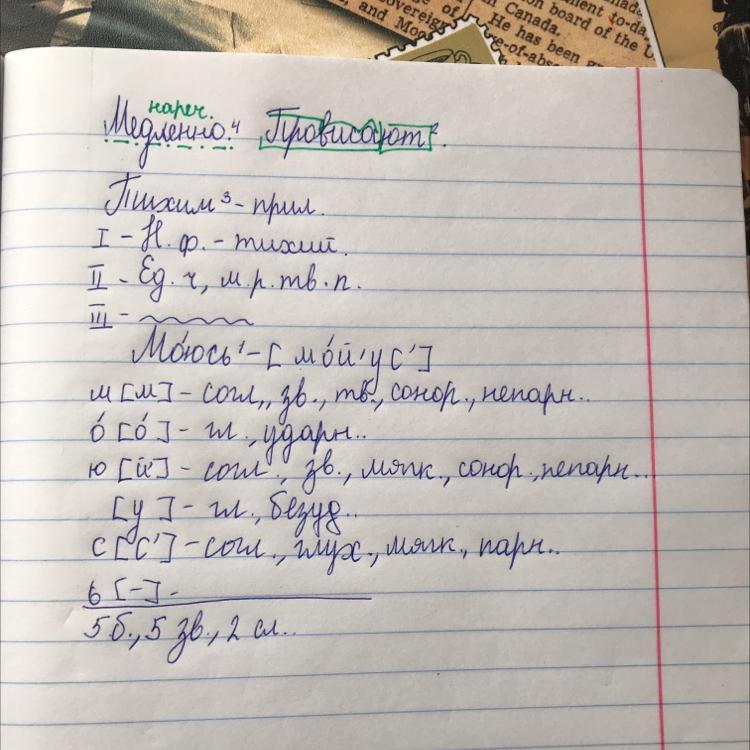 ment to-da
Canada
sovereign
and Mo
in Canada.
ion board of the U
He has been g
e-of-abse
нареч.
Медленно.⁴ Провисают².
Тихим³ - прил.
I - Н. ф. - тихий.
II - Ед. ч, м.р. тв. п.
III -
Мо́юсь¹ - [мо́й'ус']
м [м] - согл., зв., тв., сонор., непарн..
о́ [о́] - гл., ударн..
ю [й'] - согл., зв., мягк., сонор., непарн...
[у] - гл., безуд..
с [с'] - согл., глух., мягк., парн..
ь [-] -
5 б., 5 зв., 2 сл..